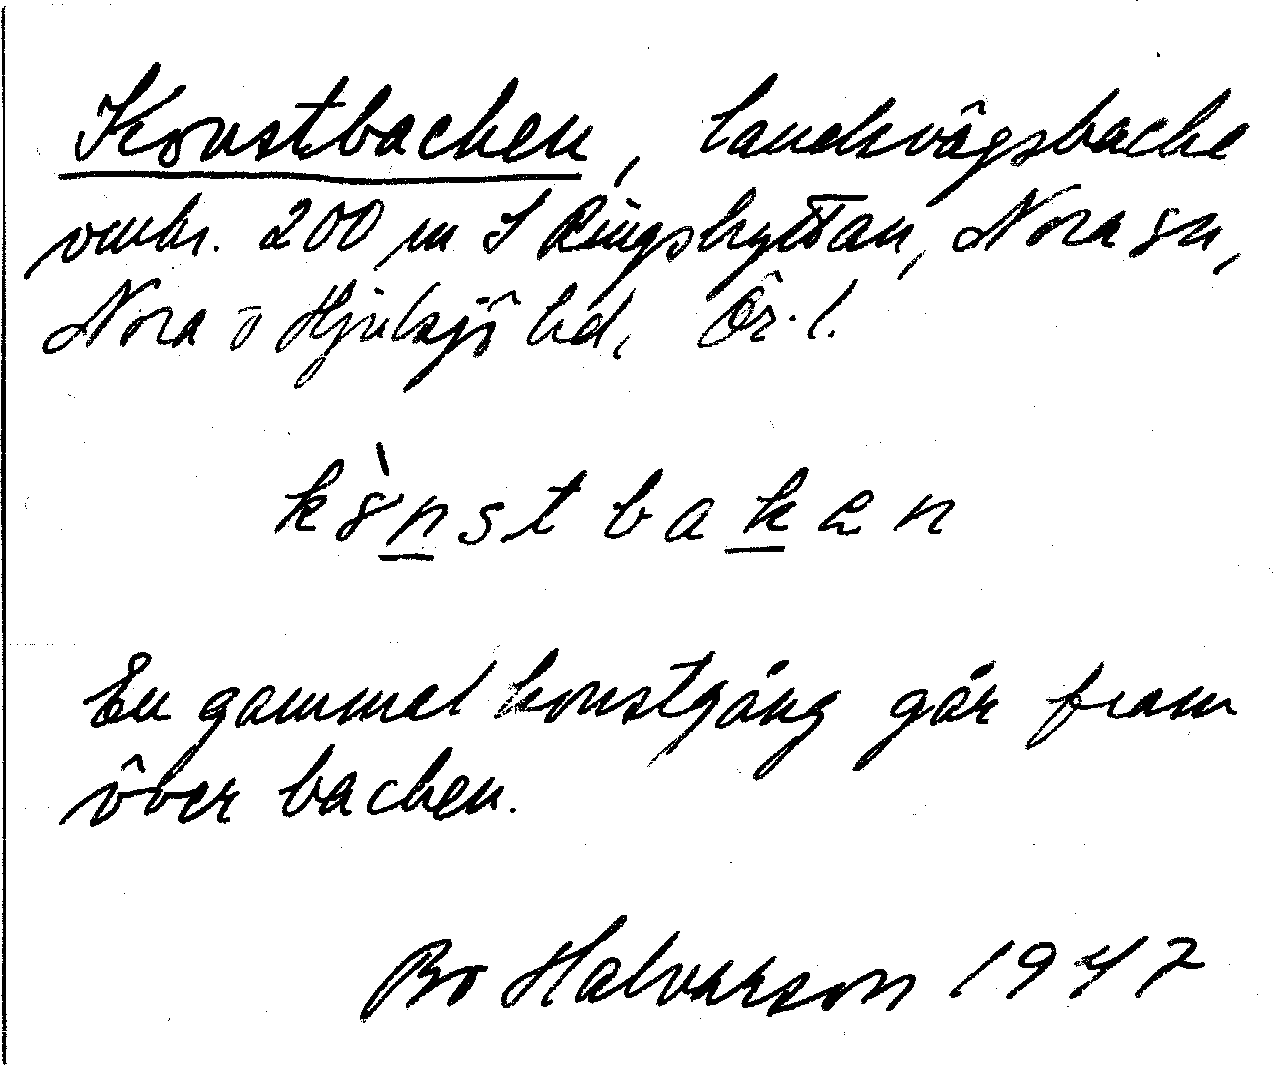 Konstbacken, landsvägsbacke
omkr. 200 m S Ringshyttan, Nora sn,
Nora o Hjulsjö hd, Ör. l.
kònstbaken
En gammal konstgång går fram
över backen.
Bo Halvarson 1947